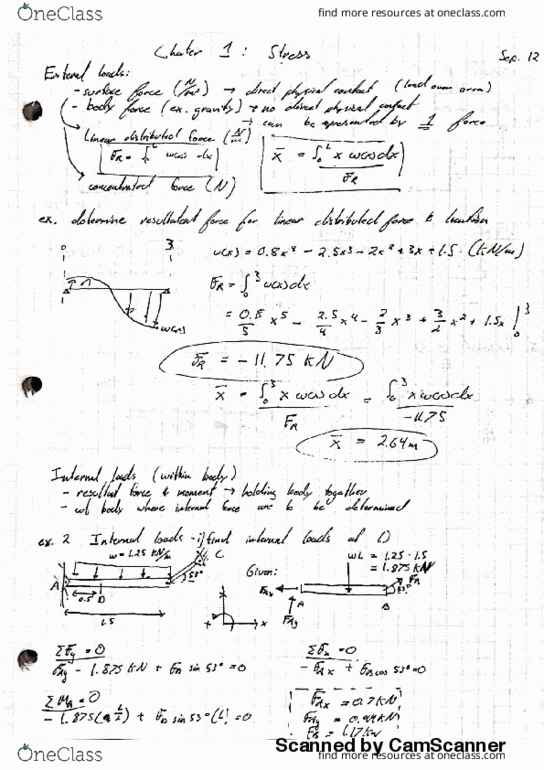 OneClass
find more resources at oneclass.com
Chater 1 : Stress
Sep. 12
External loads:
- surface force (N/m²) → direct physical contact (load over area)
- body force (ex. gravity) → no direct physical contact
→ can be represented by 1 force
Linear distributed force (N/m)
F_R = ∫₀ᴸ w(x) dx
x̄ = ∫₀ᴸ x w(x) dx / F_R
concentrated force (N)
ex. determine resultant force for linear distributed force & location
0 3
w(x) = 0.8x⁴ - 2.5x³ - 2x² + 3x + 1.5 (kN/m)
F_R = ∫₀³ w(x) dx
w(x)
= 0.8/5 x⁵ - 2.5/4 x⁴ - 2/3 x³ + 3/2 x² + 1.5x |₀³
F_R = -11.75 kN
x̄ = ∫₀³ x w(x) dx / F_R = ∫₀³ x w(x) dx / -11.75
x̄ = 2.64m
Internal loads (within body)
- resultant force & moment → holding body together
- w/ body where internal force are to be determined
ex. 2 Internal loads - i) find internal loads at D
w = 1.25 kN/m
C
53°
A
0.5 D
1.5
Given:
+ x
wL = 1.25 · 1.5
= 1.875 kN
F_Ax
F_Ay
F_B
53°
A
B
ΣF_y = 0
F_Ay - 1.875 kN + F_B sin 53° = 0
ΣF_x = 0
- F_Ax + F_B cos 53° = 0
ΣM_A = 0
- 1.875 (L/2) + F_B sin 53° (L) = 0
F_Ax = 0.7 kN
F_Ay = 0.94 kN
F_B = 1.17 kN
Scanned by CamScanner
OneClass
find more resources at oneclass.com